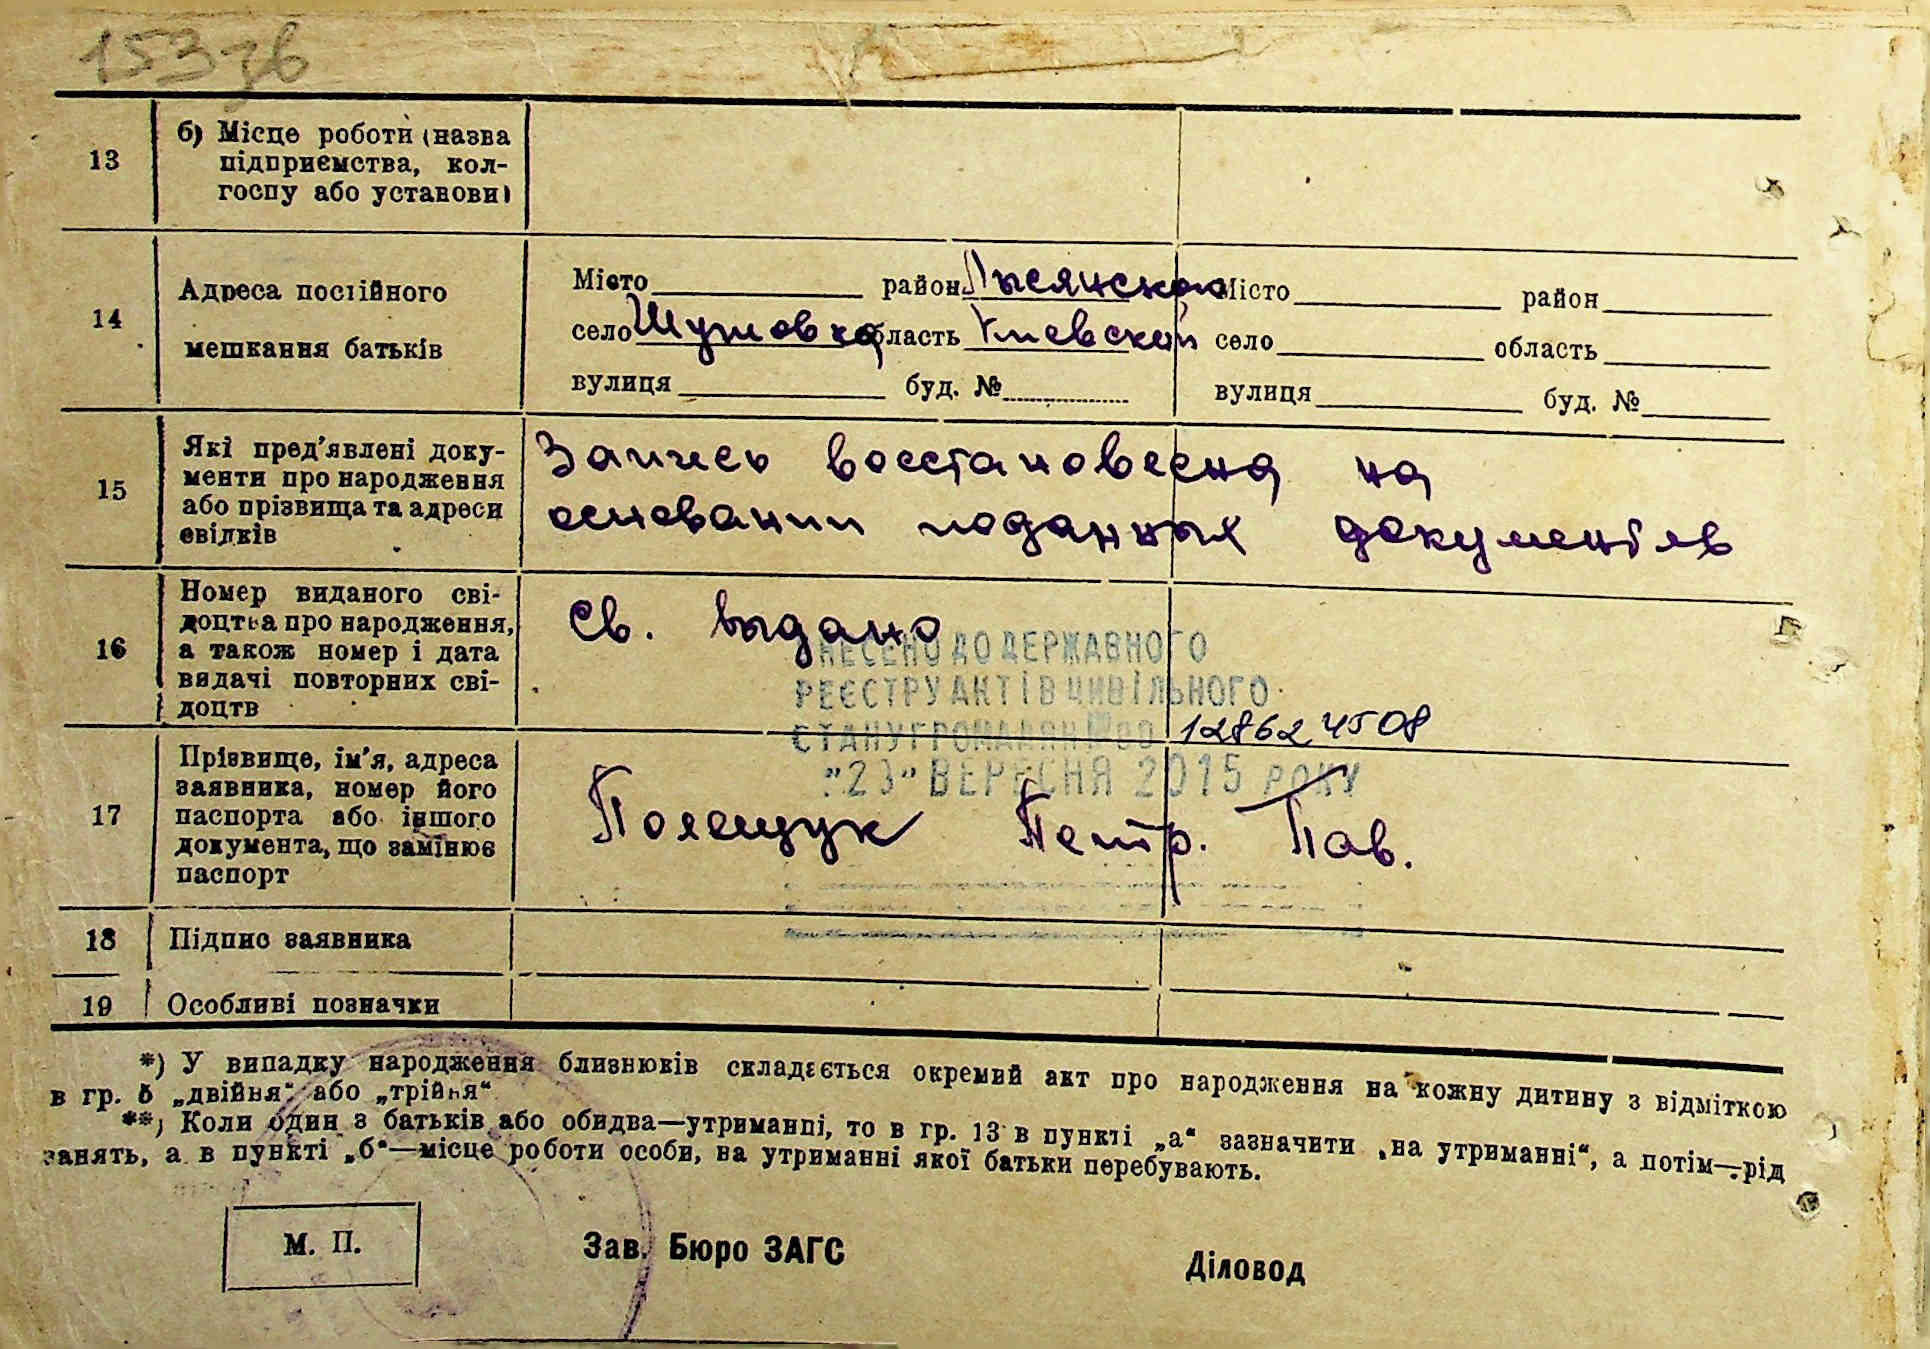 153зв
13
б) Місце роботи (назва
підприємства, кол-
госпу або установи)
14
Адреса постійного
мешкання батьків
Місто район Лысянской
село Шушковка область Киевской
вулиця буд. №
Місто район
село область
вулиця буд. №
15
Які пред'явлені доку-
менти про народження
або прізвища та адреси
свідків
Запись восстановлена на
основании поданных документов
16
Номер виданого сві-
доцтва про народження,
а також номер і дата
видачі повторних сві-
доцтв
Св. выдано
ВНЕСЕНО ДО ДЕРЖАВНОГО
РЕЄСТРУ АКТІВ ЦИВІЛЬНОГО
СТАНУ ГРОМАДЯН №00 128624508
"23" ВЕРЕСНЯ 2015 РОКУ
17
Прізвище, ім'я, адреса
заявника, номер його
паспорта або іншого
документа, що замінює
паспорт
Полещук Петр. Пав.
18
Підпис заявника
19
Особливі позначки
*) У випадку народження близнюків складається окремий акт про народження на кожну дитину з відміткою
в гр. 5 „двійня“ або „трійня“
**) Коли один з батьків або обидва—утриманці, то в гр. 13 в пункті „а“ зазначити „на утриманні“, а потім—рід
занять, а в пункті „б“—місце роботи особи, на утриманні якої батьки перебувають.
М. П.
Зав. Бюро ЗАГС
Діловод